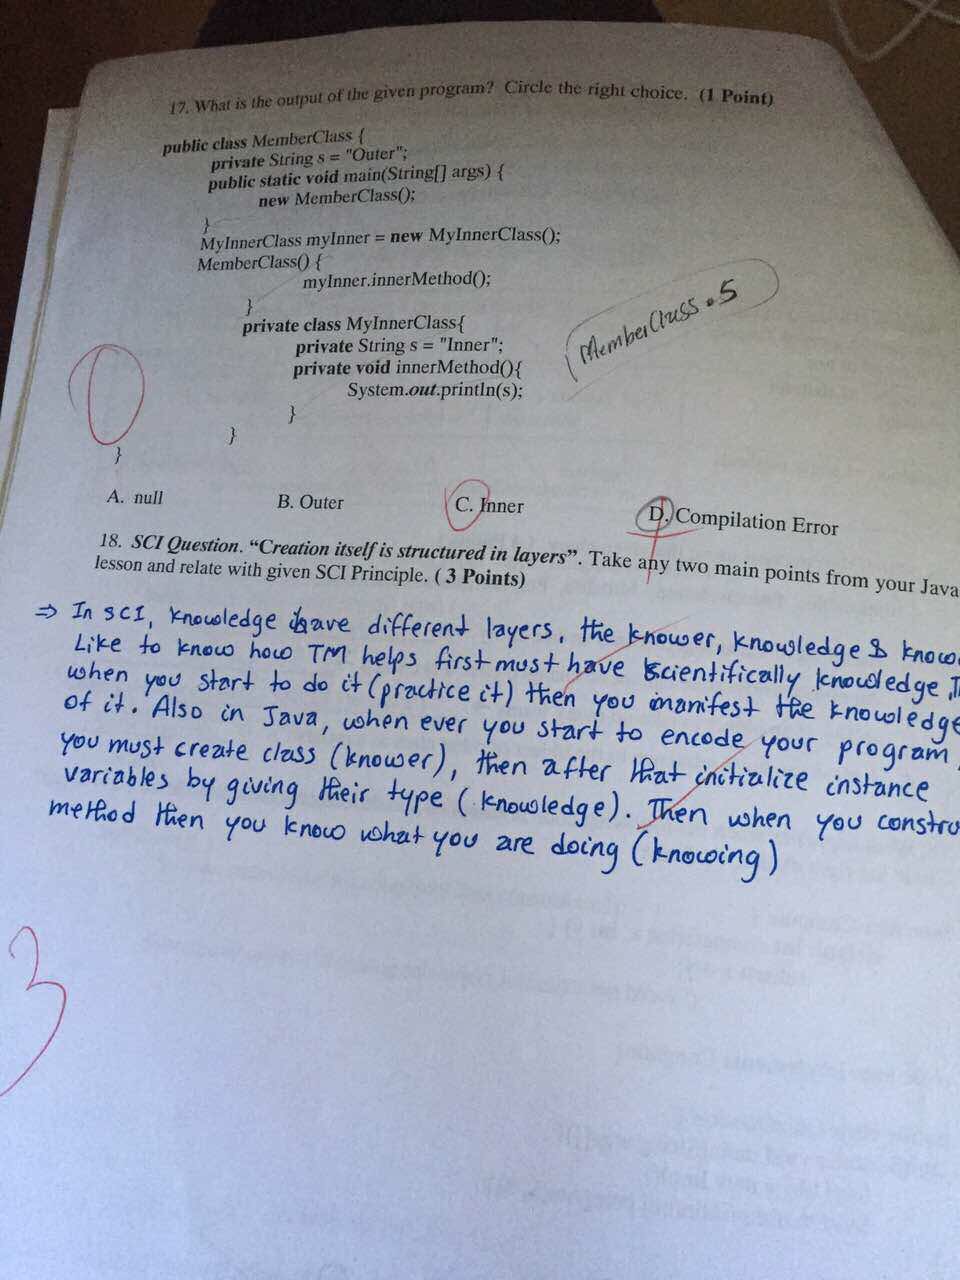 17. What is the output of the given program? Circle the right choice. (1 Point)
public class MemberClass {
private String s = "Outer";
public static void main(String[] args) {
new MemberClass();
}
MyInnerClass myInner = new MyInnerClass();
MemberClass() {
myInner.innerMethod();
}
private class MyInnerClass{
private String s = "Inner";
private void innerMethod(){
System.out.println(s);
}
}
}
MemberClass.s
0
A. null B. Outer C. Inner D. Compilation Error
18. SCI Question. “Creation itself is structured in layers”. Take any two main points from your Java
lesson and relate with given SCI Principle. ( 3 Points)
⇒ In SCI, knowledge have different layers, the knower, knowledge & know
Like to know how TM helps first must have scientifically knowledge,
when you start to do it (practice it) then you manifest the knowledge
of it. Also in Java, when ever you start to encode your program,
you must create class (knower), then after that initialize instance
variables by giving their type (knowledge). Then when you constru
method then you know what you are doing (knowing)
3